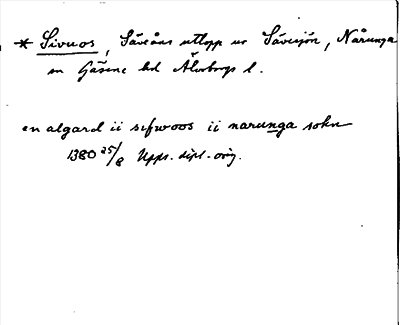 * Sivuos, Säveåns utlopp ur Sävesjön, Nårunga
sn Gäsene hd Älvsborgs l.
en algard ii sifwoos ii narunga sokn
1380 25/8 Upps. dipl. orig.